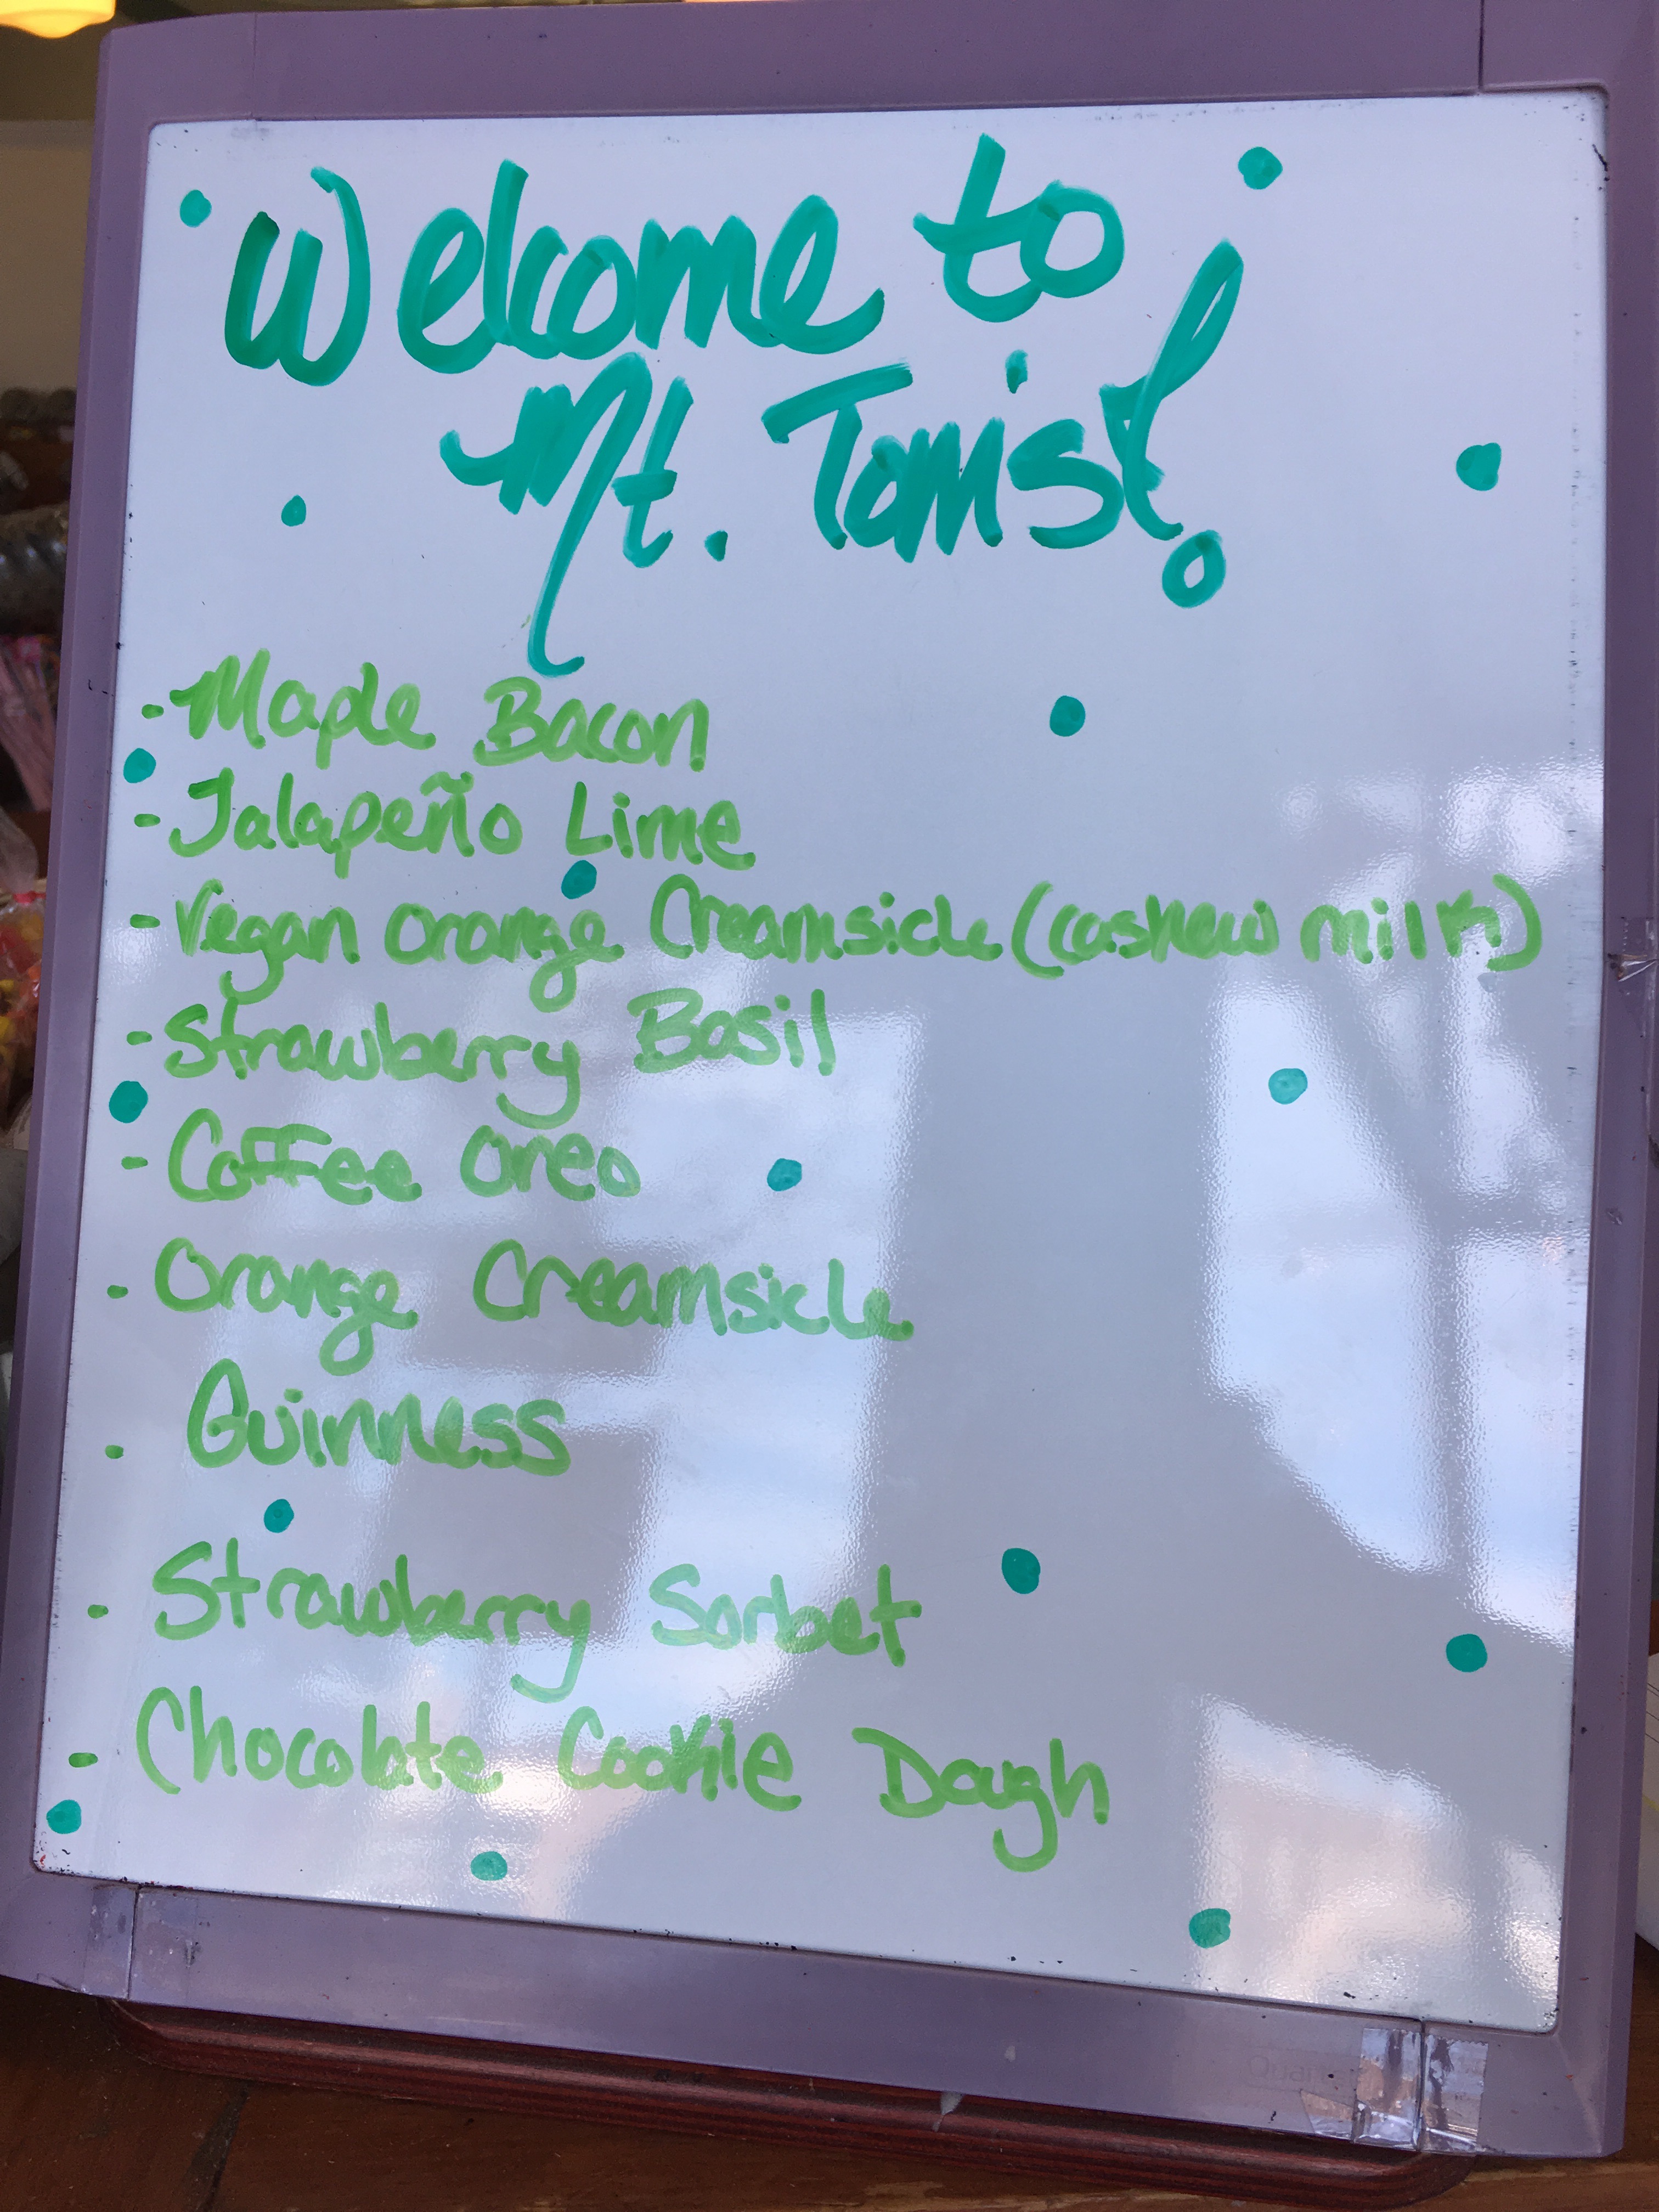 Welcome to
Mt. Tom's!
- Maple Bacon
- Jalapeño Lime
- Vegan Orange Creamsicle (cashew milk)
- Strawberry Basil
- Coffee Oreo
- Orange Creamsicle
- Guinness
- Strawberry Sorbet
- Chocolate Cookie Dough